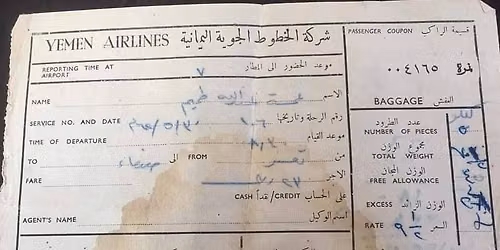 YEMEN AIRLINES شركة الخطوط الجوية اليمانية
PASSENGER COUPON قسيمة الراكب
REPORTING TIME AT AIRPORT ٧ موعد الحضور الى المطار
نمرة ٠٠٤١٦٥
NAME الله الاسم
SERVICE NO. AND DATE ١٠٦ رقم الرحلة وتاريخها
TIME OF DEPARTURE ٨/٣٠ موعد القيام
TO صنعاء الى FROM تعز من
FARE الاجر
CASH/CREDIT على الحساب/نقداً
AGENT'S NAME اسم الوكيل
BAGGAGE العفش
NUMBER OF PIECES عدد الطرود
TOTAL WEIGHT مجموع الوزن
FREE ALLOWANCE الوزن المجان
EXCESS الوزن الزائد
RATE السعر